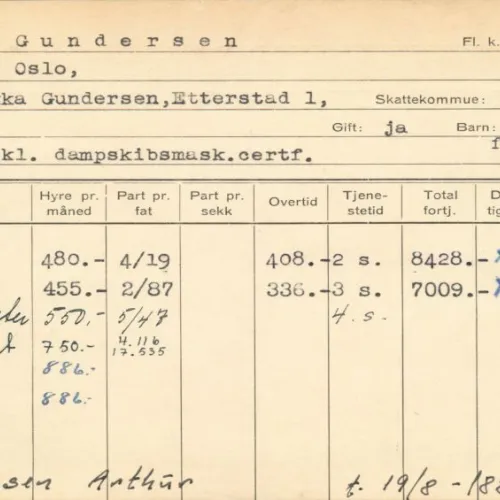 Gundersen Fl. k.
Oslo,
ka Gundersen, Etterstad 1, Skattekommue:
Gift: ja Barn: f
kl. dampskibsmask.certf.
Hyre pr. måned Part pr. fat Part pr. sekk Overtid Tjene-stetid Total fortj. D tig
480.- 4/19 408.- 2 s. 8428.-
455.- 2/87 336.- 3 s. 7009.-
550.- 5/47 4. s.
750.- 4.116 17.535
886.-
886.-
sen Arthur t. 19/8 - 188